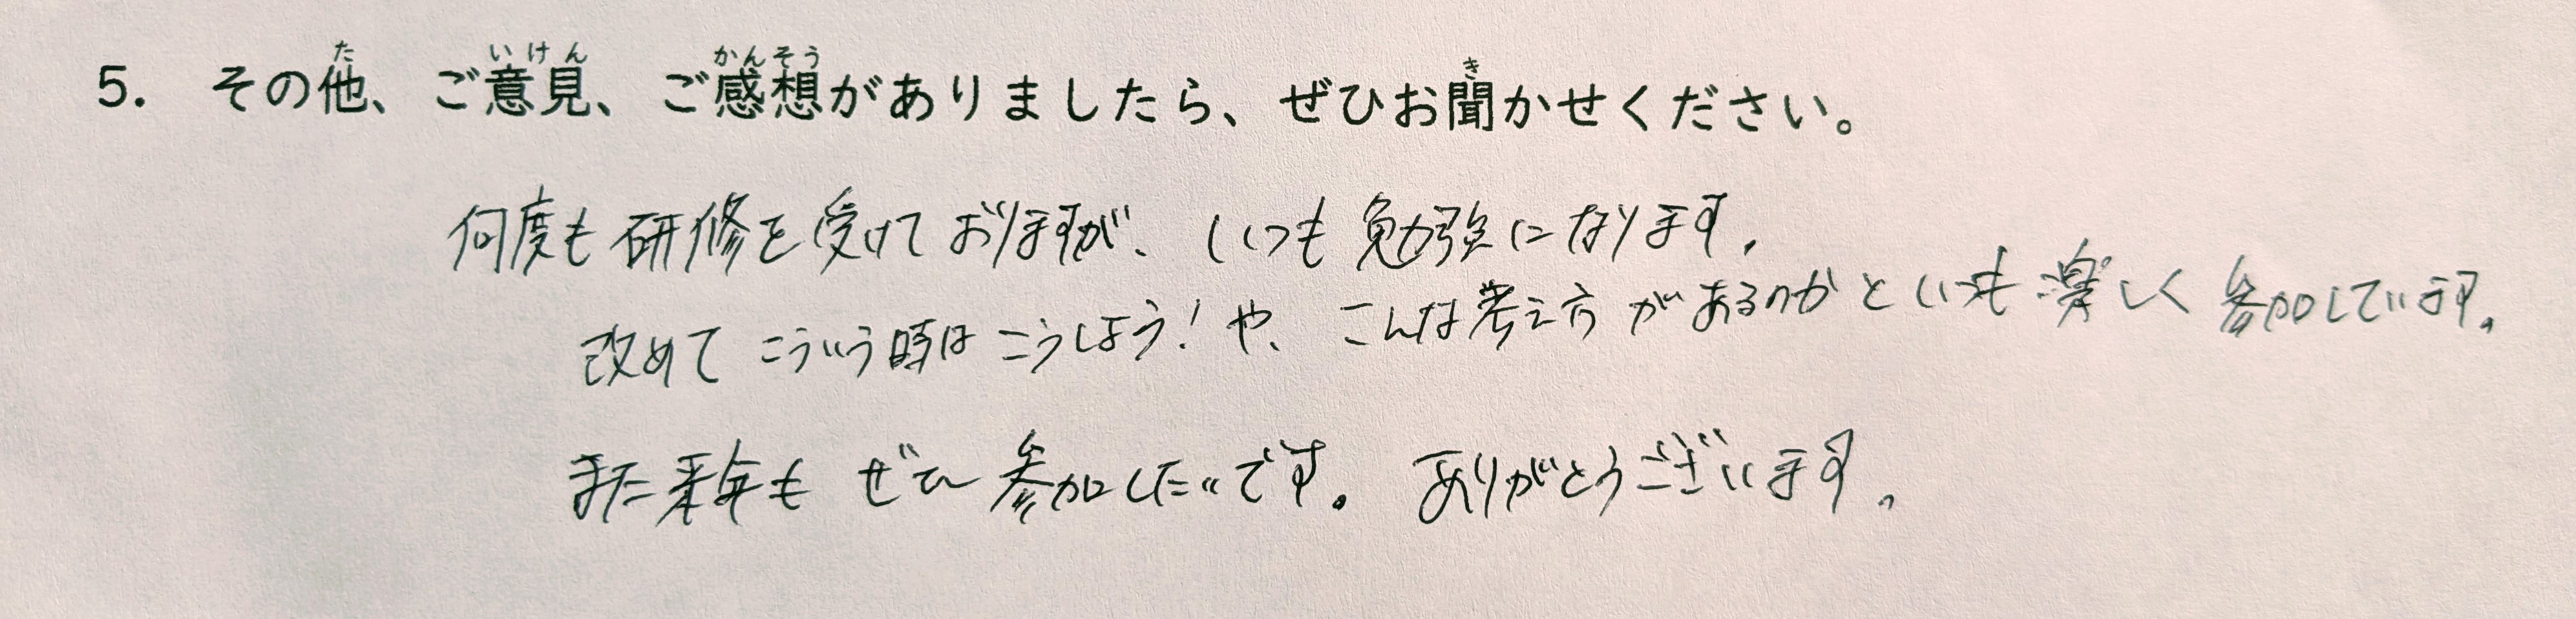 5. その他、ご意見、ご感想がありましたら、ぜひお聞かせください。
何度も研修を受けておりますが、いつも勉強になります。
改めてこういう時はこうしよう！や、こんな考え方があるのかといつも楽しく参加しています。
また来年もぜひ参加したいです。ありがとうございます。